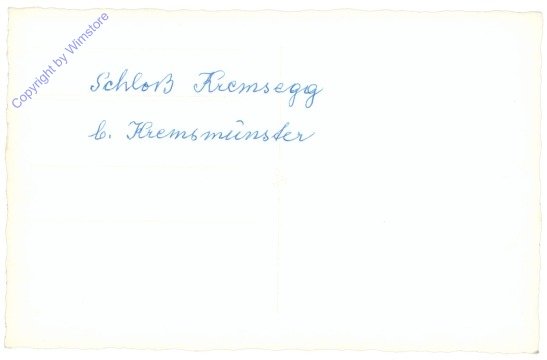 Copyright by Wimstore
Schloß Kremsegg
b. Kremsmünster